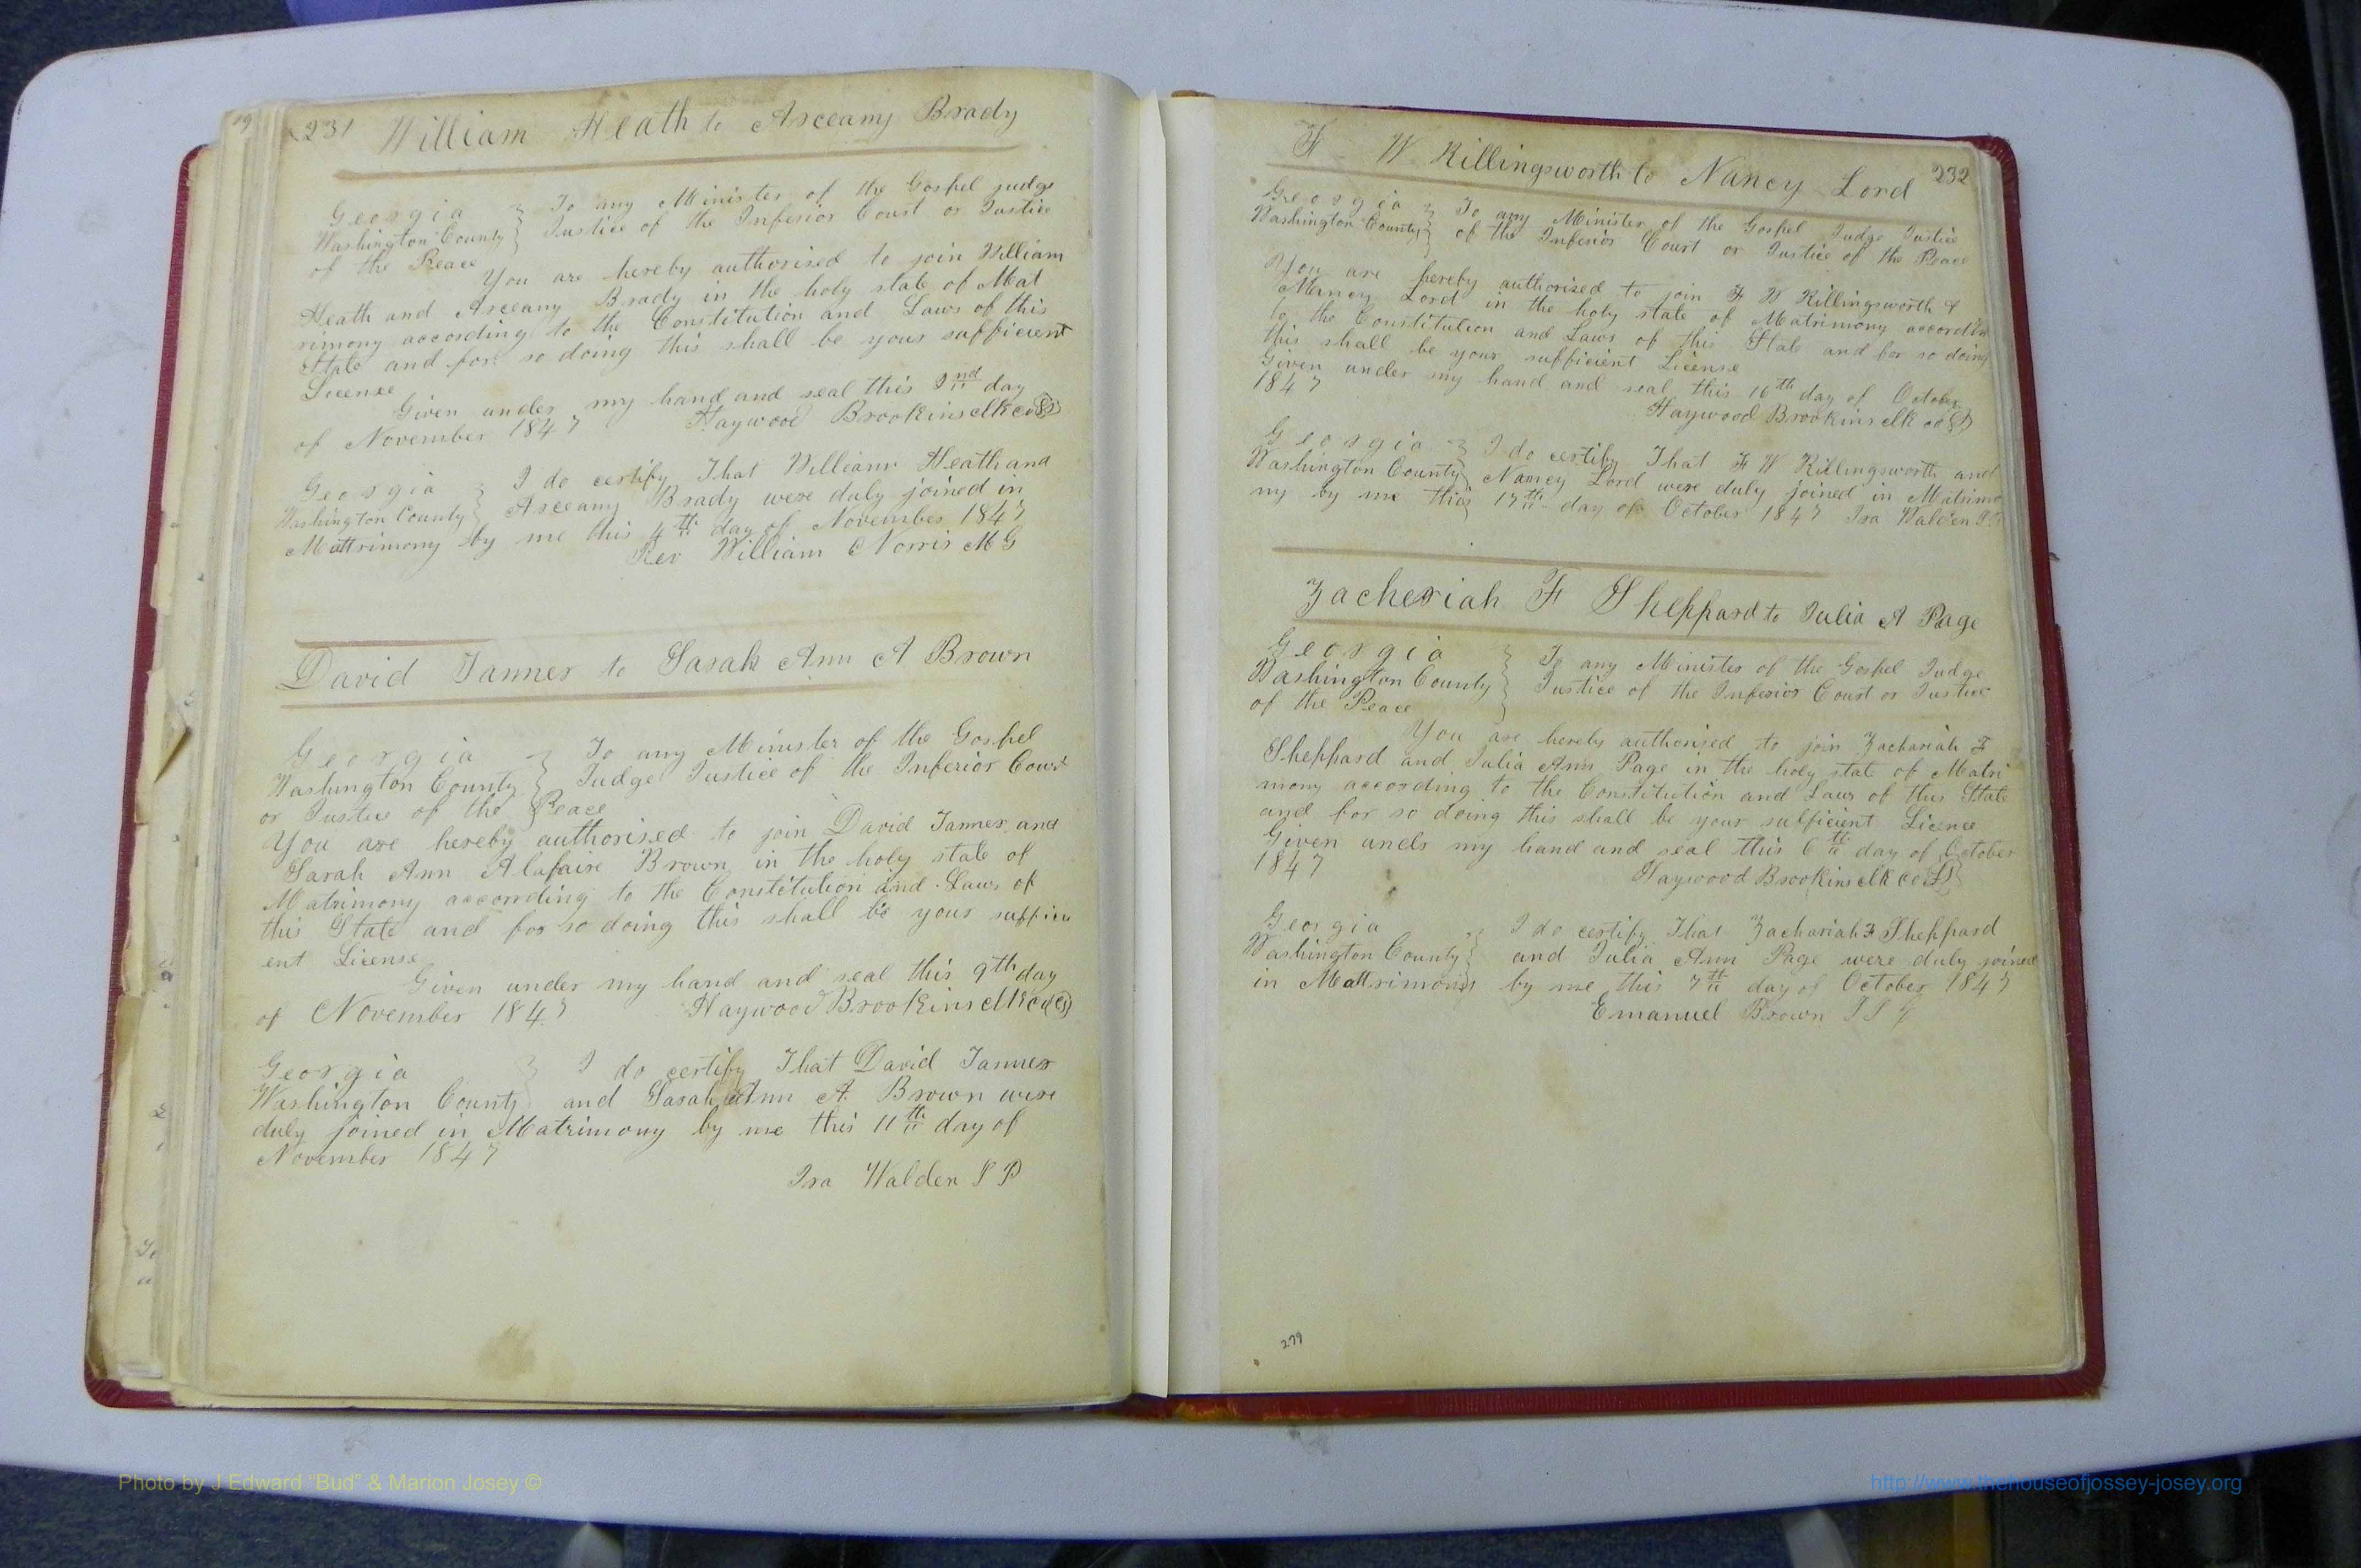 19
231 William Heath to Asceamy Brady
Georgia } To any Minister of the Gospel judge
Washington County } Justice of the Inferior Court or Justice
of the Peace
You are hereby authorised to join William
Heath and Asceamy Brady in the holy state of Mat
rimony according to the Constitution and Laws of this
State and for so doing this shall be your sufficient
License
Given under my hand and seal this 2nd day
of November 1847 Haywood Brookins clk co
Georgia } I do certify That William Heath and
Washington County } Asceamy Brady were duly joined in
Mattrimony by me this 4th day of November 1847
Rev William Norris M G
David Tanner to Sarah Ann A Brown
Georgia } To any Minister of the Gospel
Washington County } Judge Justice of the Inferior Court
or Justice of the Peace
You are hereby authorised to join David Tanner and
Sarah Ann Alafaire Brown in the holy state of
Matrimony according to the Constitution and Laws of
this State and for so doing this shall be your suffici
ent License
Given under my hand and seal this 9th day
of November 1847 Haywood Brookins clk co
Georgia } I do certify That David Tanner
Washington County } and Sarah Ann A. Brown were
duly joined in Matrimony by me this 11th day of
November 1847
Ira Walden J P
F W Killingsworth to Nancy Lord 232
Georgia } To any Minister of the Gospel Judge Justice
Washington County } of the Inferior Court or Justice of the Peace
You are hereby authorized to join F W Killingsworth &
Nancy Lord in the holy state of Matrimony according
to the Constitution and Laws of this State and for so doing
this shall be your sufficient License
Given under my hand and seal this 16th day of October
1847
Haywood Brookins clk co
Georgia } I do certify That F W Killingsworth and
Washington County } Nancy Lord were duly joined in Matrimo
ny by me this 17th day of October 1847 Ira Walden J P
Zacheriah F Sheppard to Julia A Page
Georgia } To any Minister of the Gospel Judge
Washington County } Justice of the Inferior Court or Justice
of the Peace
You are hereby authorised to join Zachariah F
Sheppard and Julia Ann Page in the holy state of Matri
mony according to the Constitution and Laws of this State
and for so doing this shall be your sufficient License
Given under my hand and seal this 6th day of October
1847 Haywood Brookins clk co
Georgia } I do certify That Zachariah F Sheppard
Washington County } and Julia Ann Page were duly joined
in Mattrimony by me this 7th day of October 1847
Emanuel Brown
279
Photo by J Edward “Bud” & Marion Josey ©
http://www.thehouseofjossey-josey.org